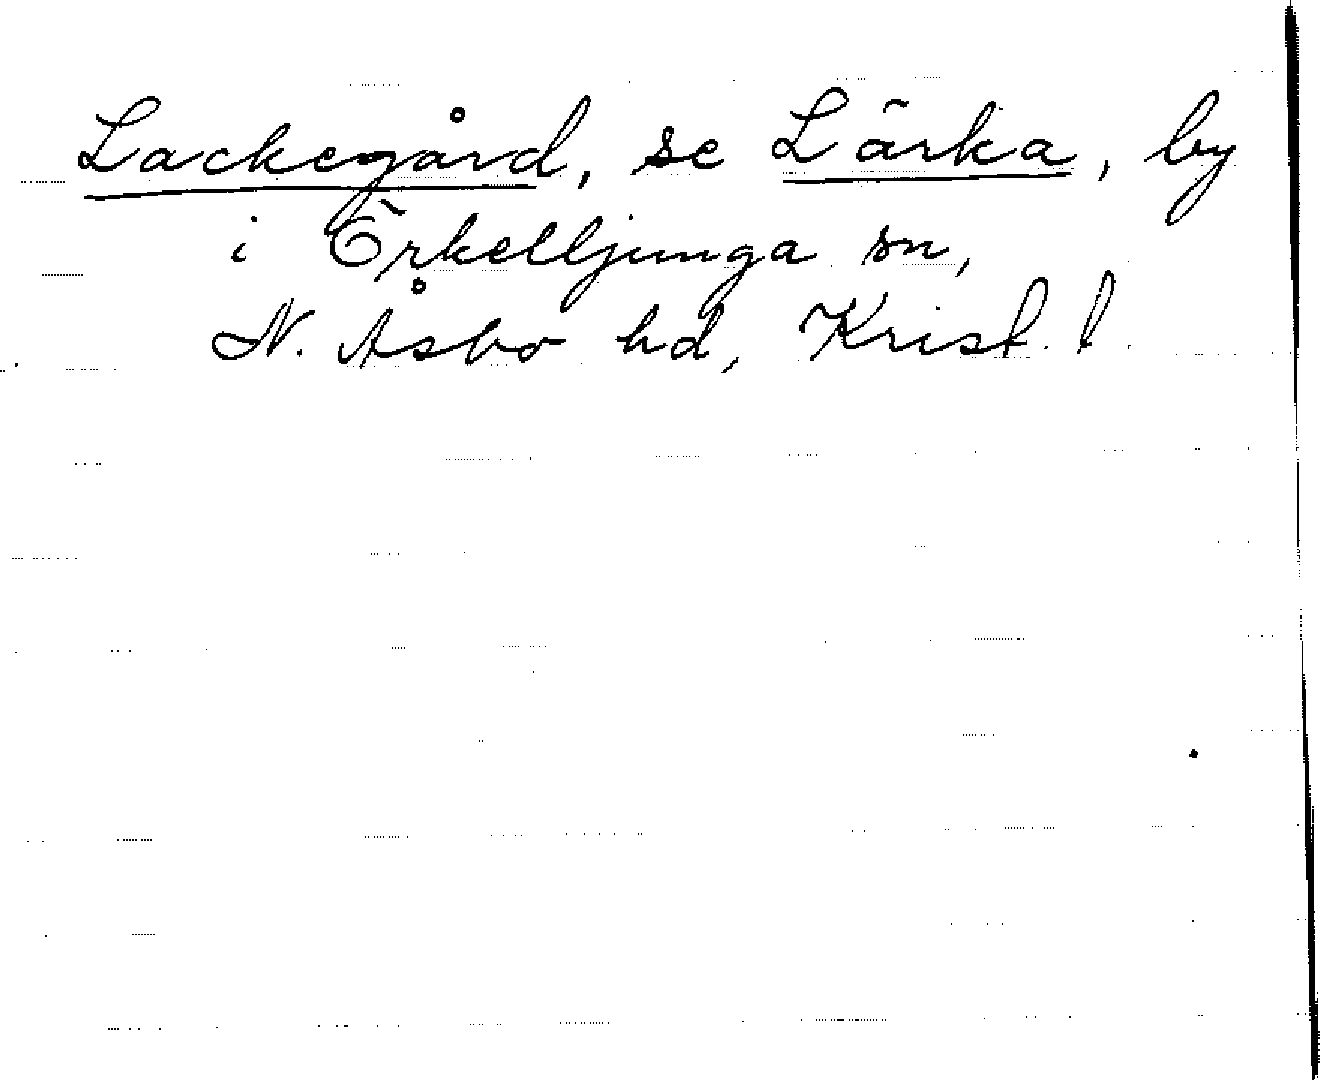 Lackegård, se Lärka, by
i Örkelljunga sn,
N. Åsbo hd, Krist. l.